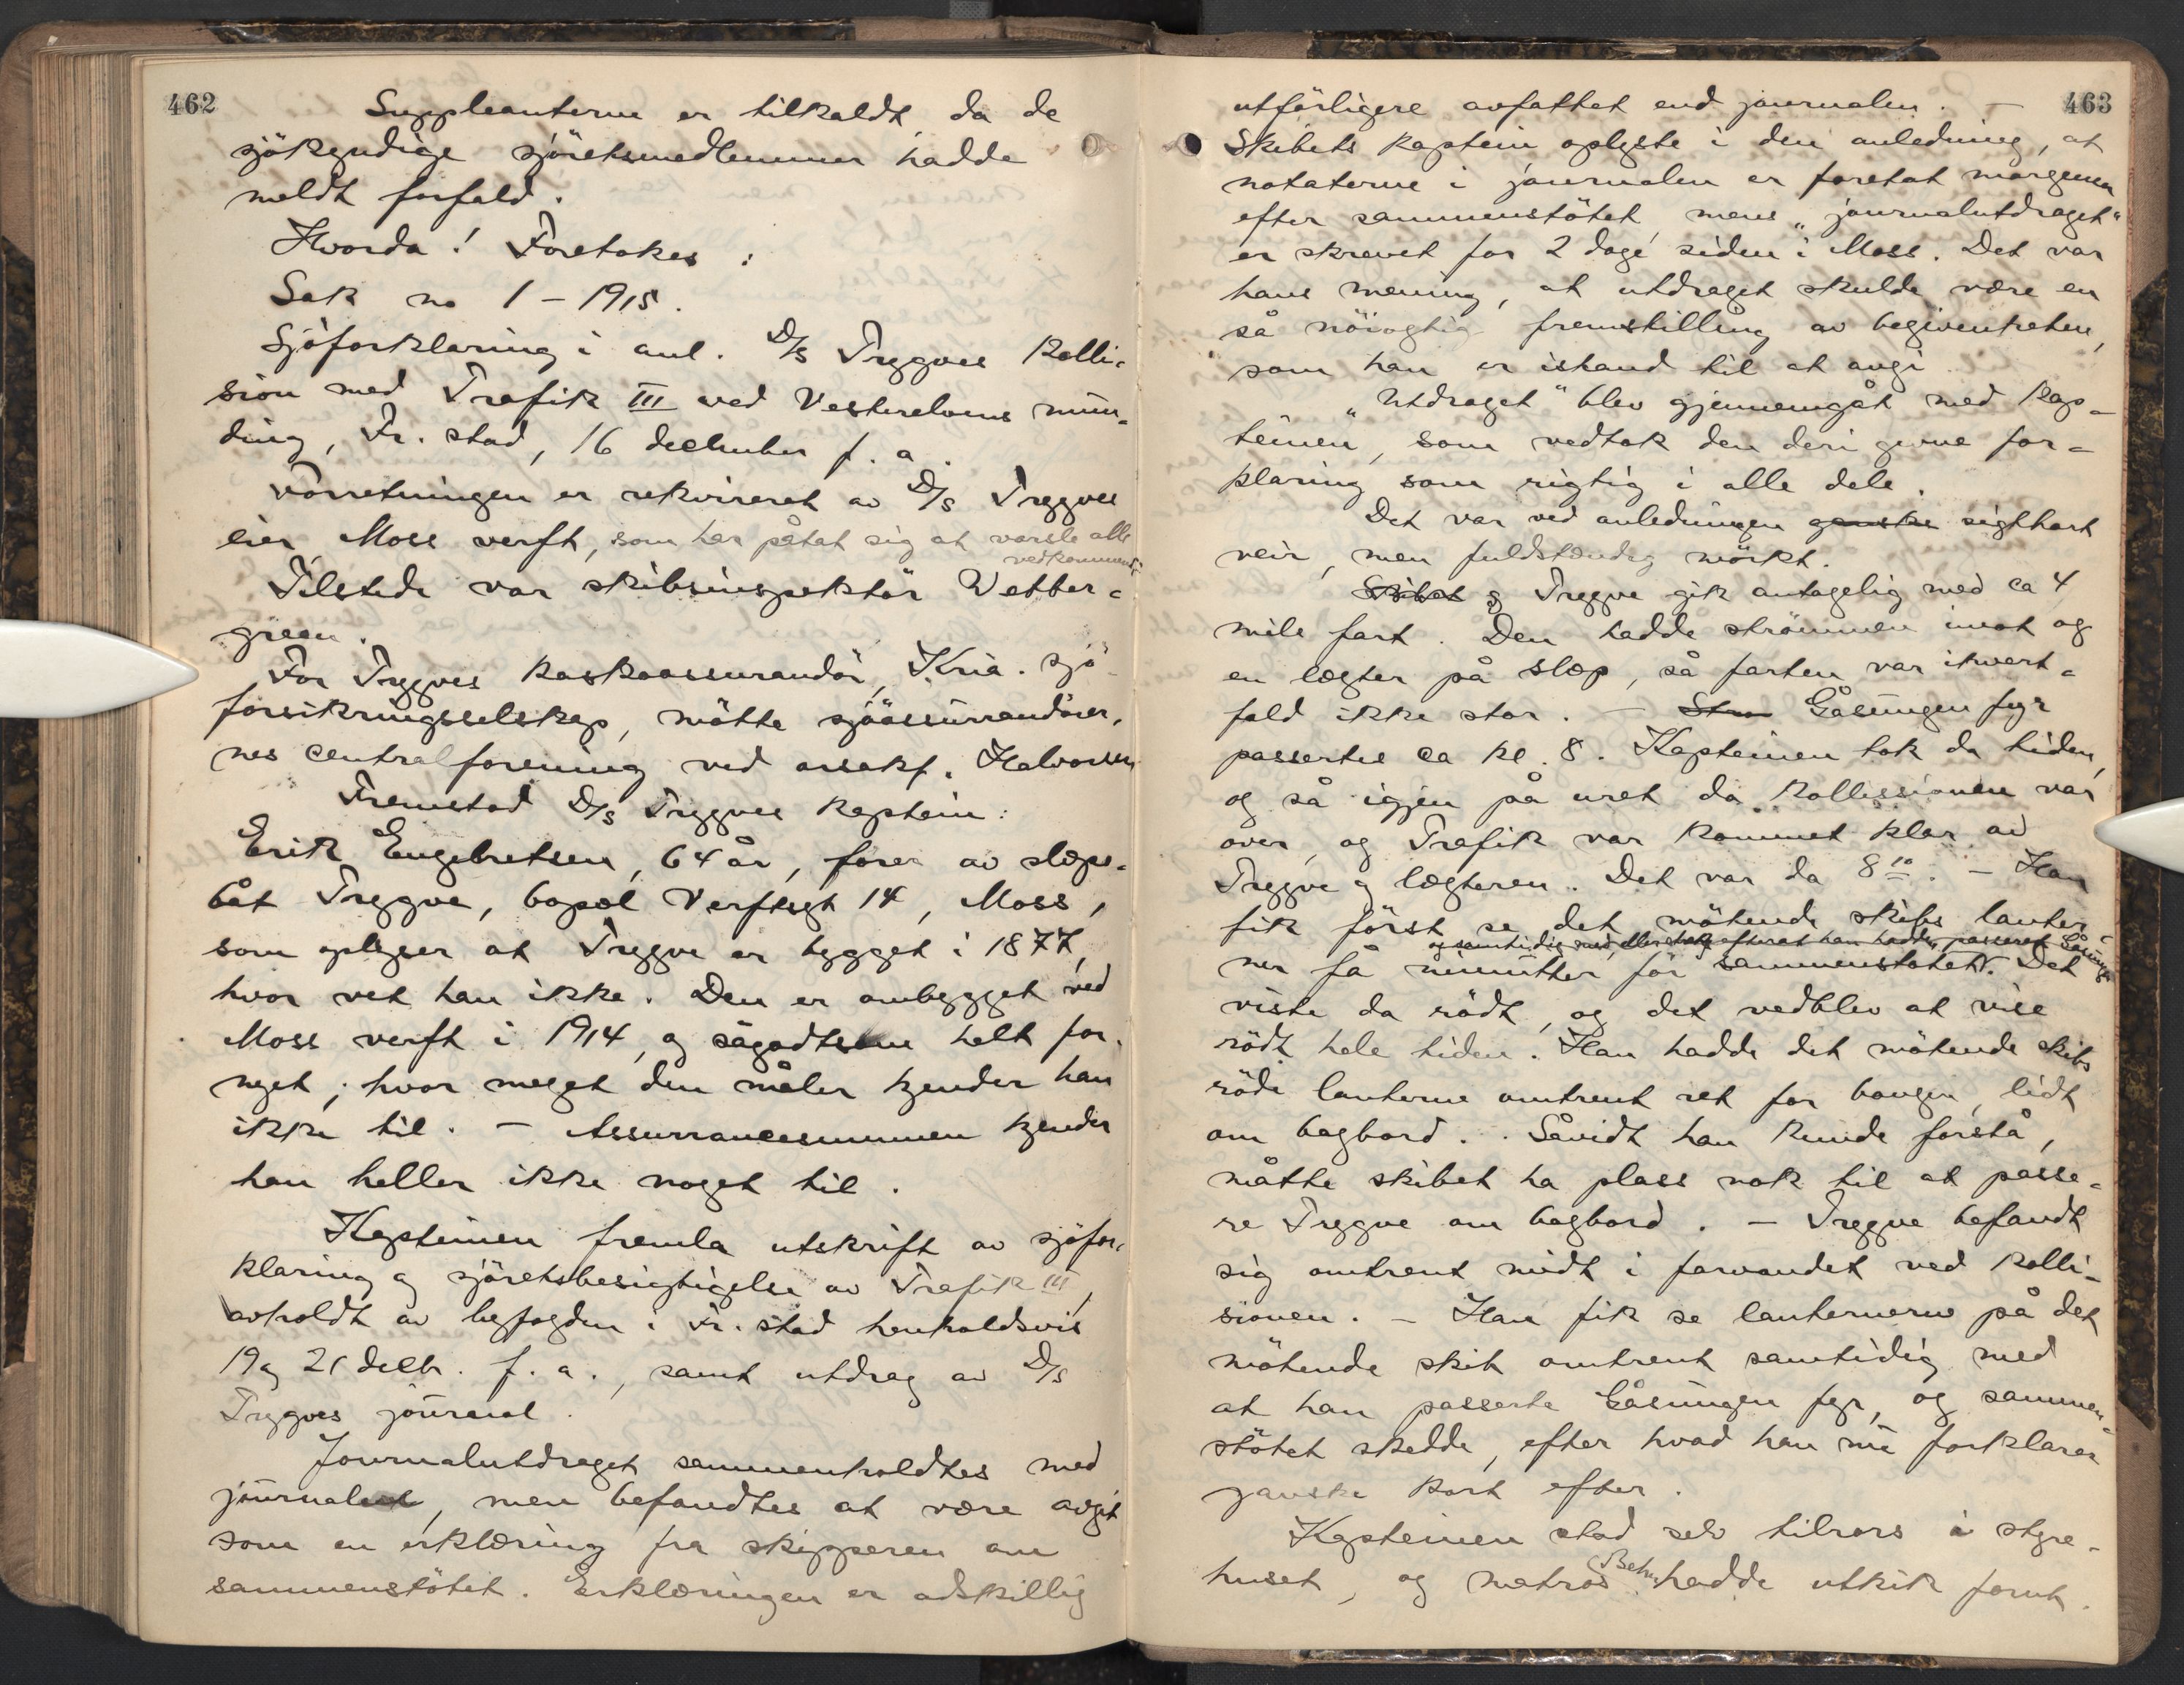 462
Suppleanterne er tilkaldt, da de
sjökyndige sjöretsmedlemmer hadde
meldt forfald.
Hvorda! Foretokes:
Sak no 1 – 1915.
Sjöforklaring i anl. D/s Trygves kolli-
sion med Trafik III ved Vesterelvens mun-
ding, Fr.stad, 16 december f. a.
Forretningen er rekvireret av D/s Trygves
eier, Moss verft, som har påtat sig at varsle alle
vedkommende
Tilstede var skibsinspektör Wetter-
green.
For Trygves kaskoassurandör, Kria. sjö-
forsikringsselskap, mötte sjöassurandörer-
nes centralforening ved orsakf. Halvorsen
Fremstod D/s Trygves kaptein:
Erik Engebretsen, 64 år, förer av slæpe-
båt Trygve, bopæl Verftsgt 14, Moss,
som oplyser at Trygve er bygget i 1877,
hvor vet han ikke. Den er ombygget ved
Moss verft i 1914, og sågodtsom helt for-
nyet; hvor meget den måler kjender han
ikke til. – Assurrancesummen kjender
han heller ikke noget til.
Kapteinen fremla utskrift av sjöfor-
klaring og sjöretsbesigtigelse av Trafik III,
avholdt av byfogden i Fr.stad henholdsvis
19 og 21 decbr. f. a., samt utdrag av D/s
Trygves journal.
Journalutdraget sammenholdtes med
journalen, men befandtes at være avgit
som en erklæring fra skipperen om
sammenstötet. Erklæringen er adskillig
463
utförligere avfattet end journalen. –
Skibets kaptein oplyste i den anledning, at
notaterne i journalen er foretat morgenen
efter sammenstötet, mens „journalutdraget“
er skrevet for 2 dage siden i Moss. Det var
hans mening, at utdraget skulde være en
så nöiagtig fremstilling av begivenheten,
som han er istand til at avgi
„Utdraget“ blev gjennemgåt med kap-
teinen, som vedtok den deri givne for-
klaring som rigtig i alle dele.
Det var ved anledningen ganske sigtbart
veir, men fuldstændig mörkt.
Skibet og Trygve gik antagelig med ca 4
mile fart. Den hadde strömmen imot og
en lægter på slæp, så farten var ikvert-
fald ikke stor. – Gåsungen fyr
passertes ca kl. 8. Kapteinen tok da tiden,
og så igjen på uret da kollissionen var
over, og Trafik var kommet klar av
Trygve og lægteren. Det var da 8 10. – Han
fik först se det mötende skibs lanter-
og samtidig med, eller straks efterat han hadde passeret Gåsungen
ner få minutter för sammenstötet. Det
viste da rödt, og det vedblev at vise
rödt hele tiden. Han hadde det mötende skibs
röde lanterne omtrent ret for bougen, lidt
om bagbord. Såvidt han kunde forstå,
måtte skibet ha plass nok til at passe-
re Trygve om bagbord. – Trygve befandt
sig omtrent midt i farvandet ved kolli-
sionen. – Han fik se lanternerne på det
mötende skib omtrent samtidig med
at han passerte Gåsungen fyr, og sammen-
stötet skedde, efter hvad han nu forklarer
ganske kort efter.
Kapteinen stod selv tilrors i styre-
huset, og matros Behn hadde utkik forut.